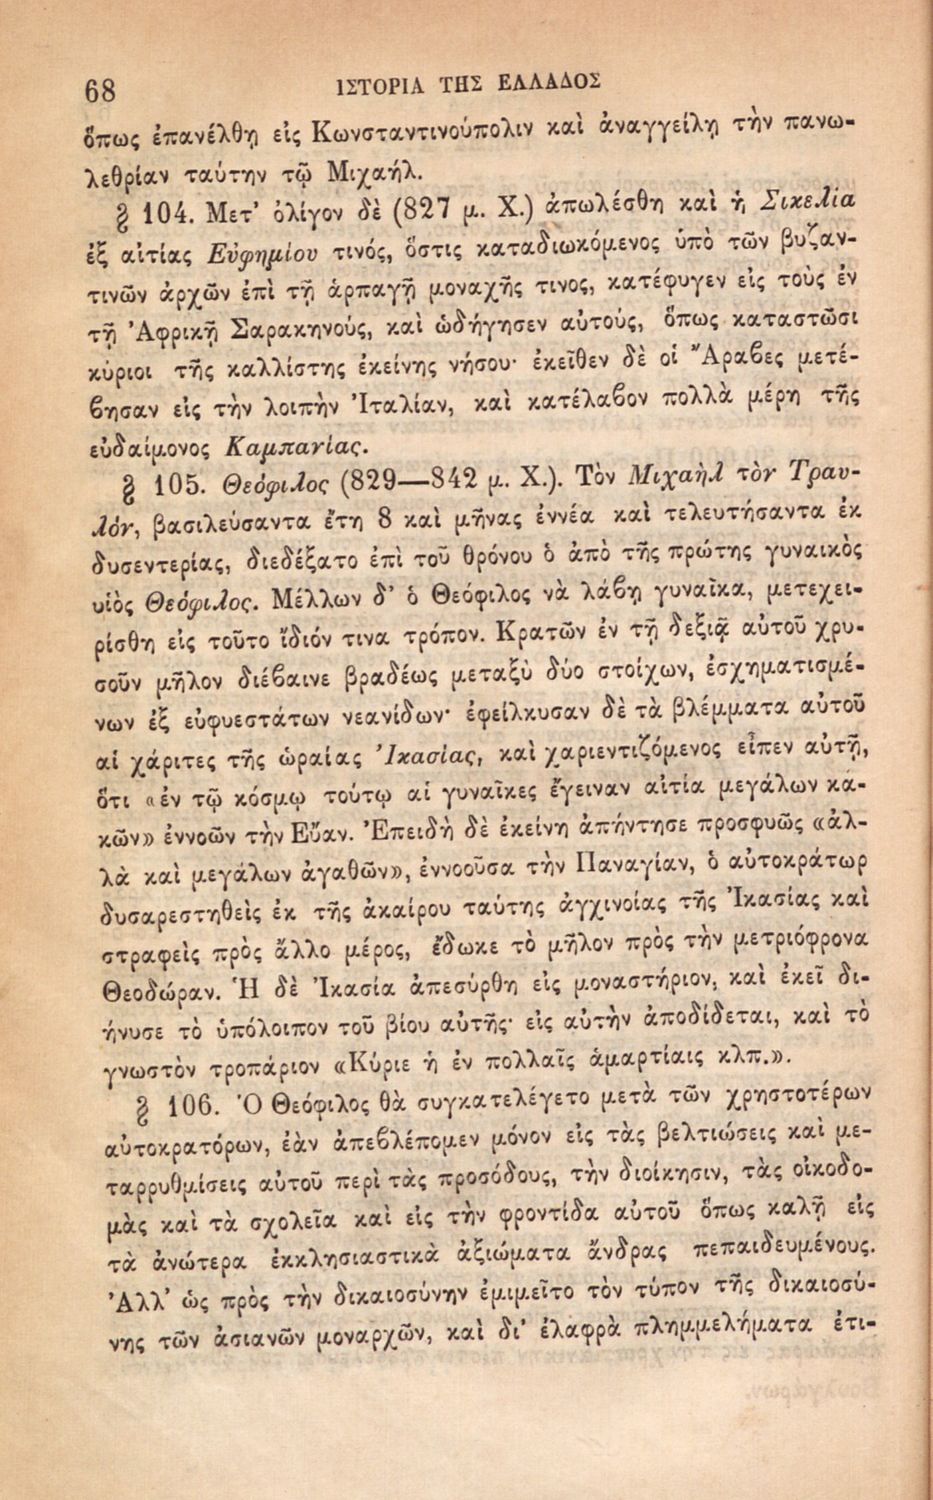 68
ΙΣΤΟΡΙΑ ΤΗΣ ΕΛΛΑΔΟΣ
ὅπως ἐπανέλθῃ εἰς Κωνσταντινούπολιν καὶ ἀναγγείλῃ τὴν πανω-
λεθρίαν ταύτην τῷ Μιχαήλ.
§ 104. Μετ’ ὀλίγον δὲ (827 μ. Χ.) ἀπωλέσθη καὶ ἡ Σικελία
ἐξ αἰτίας Εὐφημίου τινός, ὅστις καταδιωκόμενος ὑπὸ τῶν βυζαν-
τινῶν ἀρχῶν ἐπὶ τῇ ἁρπαγῇ μοναχῆς τινος, κατέφυγεν εἰς τοὺς ἐν
τῇ Ἀφρικῇ Σαρακηνούς, καὶ ὡδήγησεν αὐτούς, ὅπως καταστῶσι
κύριοι τῆς καλλίστης ἐκείνης νήσου· ἐκεῖθεν δὲ οἱ Ἄραβες μετέ-
βησαν εἰς τὴν λοιπὴν Ἰταλίαν, καὶ κατέλαβον πολλὰ μέρη τῆς
εὐδαίμονος Καμπανίας.
§ 105. Θεόφιλος (829—842 μ. Χ.). Τὸν Μιχαὴλ τὸν Τραυ-
λόν, βασιλεύσαντα ἔτη 8 καὶ μῆνας ἐννέα καὶ τελευτήσαντα ἐκ
δυσεντερίας, διεδέξατο ἐπὶ τοῦ θρόνου ὁ ἀπὸ τῆς πρώτης γυναικὸς
υἱὸς Θεόφιλος. Μέλλων δ’ ὁ Θεόφιλος νὰ λάβῃ γυναῖκα, μετεχει-
ρίσθη εἰς τοῦτο ἴδιόν τινα τρόπον. Κρατῶν ἐν τῇ δεξιᾷ αὐτοῦ χρυ-
σοῦν μῆλον διέβαινε βραδέως μεταξὺ δύο στοίχων, ἐσχηματισμέ-
νων ἐξ εὐφυεστάτων νεανίδων· ἐφείλκυσαν δὲ τὰ βλέμματα αὐτοῦ
αἱ χάριτες τῆς ὡραίας Ἰκασίας, καὶ χαριεντιζόμενος εἶπεν αὐτῇ,
ὅτι «ἐν τῷ κόσμῳ τούτῳ αἱ γυναῖκες ἔγειναν αἰτία μεγάλων κα-
κῶν» ἐννοῶν τὴν Εὔαν. Ἐπειδὴ δὲ ἐκείνη ἀπήντησε προσφυῶς «ἀλ-
λὰ καὶ μεγάλων ἀγαθῶν», ἐννοοῦσα τὴν Παναγίαν, ὁ αὐτοκράτωρ
δυσαρεστηθεὶς ἐκ τῆς ἀκαίρου ταύτης ἀγχινοίας τῆς Ἰκασίας καὶ
στραφεὶς πρὸς ἄλλο μέρος, ἔδωκε τὸ μῆλον πρὸς τὴν μετριόφρονα
Θεοδώραν. Ἡ δὲ Ἰκασία ἀπεσύρθη εἰς μοναστήριον, καὶ ἐκεῖ δι-
ήνυσε τὸ ὑπόλοιπον τοῦ βίου αὐτῆς· εἰς αὐτὴν ἀποδίδεται, καὶ τὸ
γνωστὸν τροπάριον «Κύριε ἡ ἐν πολλαῖς ἁμαρτίαις κλπ.».
§ 106. Ὁ Θεόφιλος θὰ συγκατελέγετο μετὰ τῶν χρηστοτέρων
αὐτοκρατόρων, ἐὰν ἀπεβλέπομεν μόνον εἰς τὰς βελτιώσεις καὶ με-
ταρρυθμίσεις αὐτοῦ περὶ τὰς προσόδους, τὴν διοίκησιν, τὰς οἰκοδο-
μὰς καὶ τὰ σχολεῖα καὶ εἰς τὴν φροντίδα αὐτοῦ ὅπως καλῇ εἰς
τὰ ἀνώτερα ἐκκλησιαστικὰ ἀξιώματα ἄνδρας πεπαιδευμένους.
Ἀλλ’ ὡς πρὸς τὴν δικαιοσύνην ἐμιμεῖτο τὸν τύπον τῆς δικαιοσύ-
νης τῶν ἀσιανῶν μοναρχῶν, καὶ δι’ ἐλαφρὰ πλημμελήματα ἐτι-